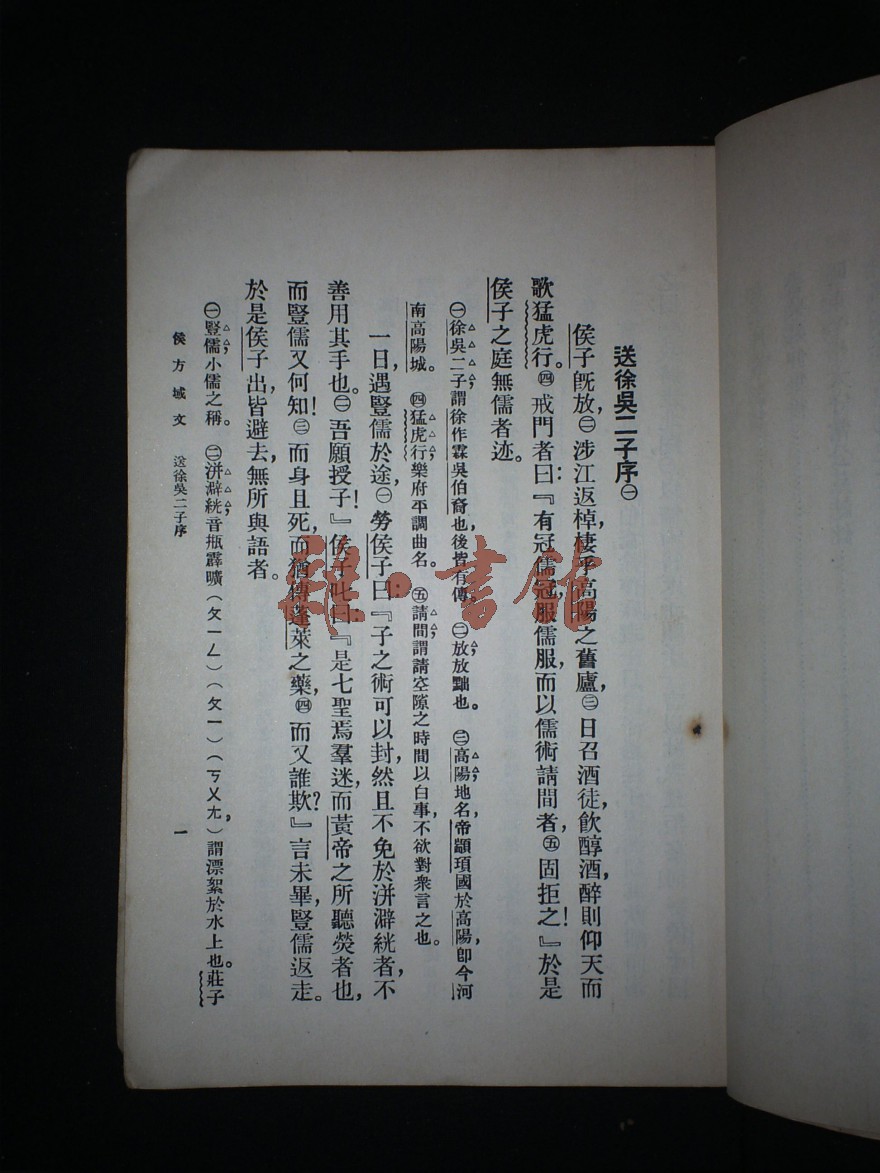 送徐吳二子序㊀
侯子旣放,㊁涉江返棹,棲乎高陽之舊廬,㊂日召酒徒,飲醇酒,醉則仰天而
歌猛虎行。㊃戒門者曰:『有冠儒冠,服儒服,而以儒術請間者,㊄固拒之!』於是
侯子之庭無儒者迹。
㊀徐吳二子,謂徐作霖吳伯裔也,後皆有傳。㊁放,放黜也。㊂高陽,地名,帝顓頊國於高陽,卽今河
南高陽城。㊃猛虎行,樂府平調曲名。㊄請間,謂請空隙之時間以白事,不欲對衆言之也。
一日,遇豎儒於途,㊀勞侯子曰『子之術可以封,然且不免於洴澼絖者,不
善用其手也。㊁吾願授子!』侯子叱曰『是七聖焉羣迷,而黃帝之所聽熒者也,
而豎儒又何知!㊂而身且死,而猶傳蓬萊之藥,㊃而又誰欺?』言未畢,豎儒返走。
於是侯子出,皆避去,無所與語者。
㊀豎儒,小儒之稱。㊁洴澼絖,音瓶霹曠(ㄆㄧㄥ)(ㄆㄧ)(ㄎㄨㄤ),謂漂絮於水上也。莊子
侯方域文 送徐吳二子序 一
雜·書館